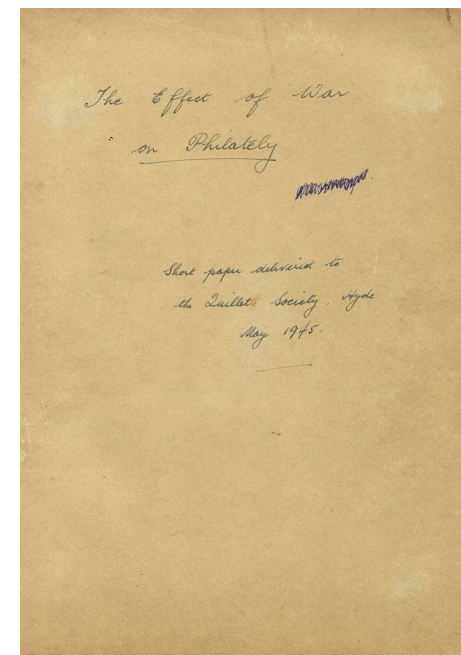 The Effect of War
on Philately
Short paper delivered to
the Quillet Society. Hyde
May 1945.